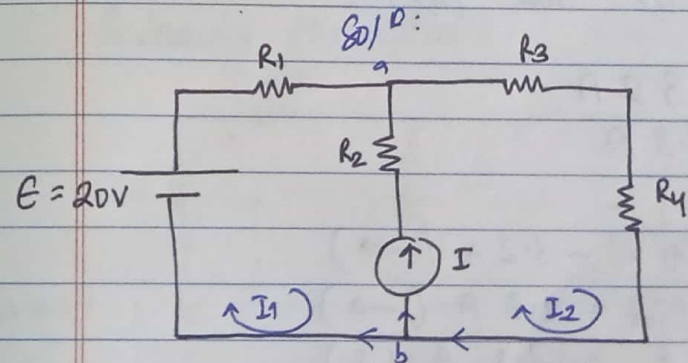 Sol^D:
R1
a
R3
R2
E = 20V
R4
I
I1
I2
b